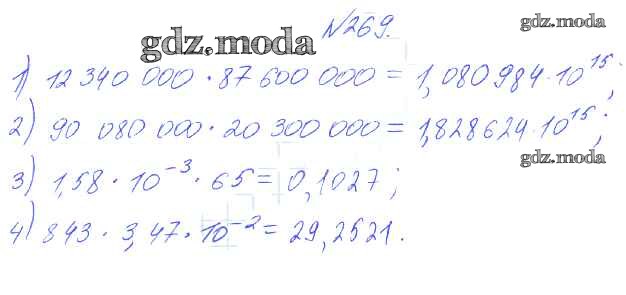 №269.
gdz.moda
gdz.moda
1) 12 340 000 · 87 600 000 = 1,080984 · 10¹⁵;
2) 90 080 000 · 20 300 000 = 1,828624 · 10¹⁵;
gdz.moda
3) 1,58 · 10⁻³ · 65 = 0,1027;
4) 843 · 3,47 · 10⁻² = 29,2521.